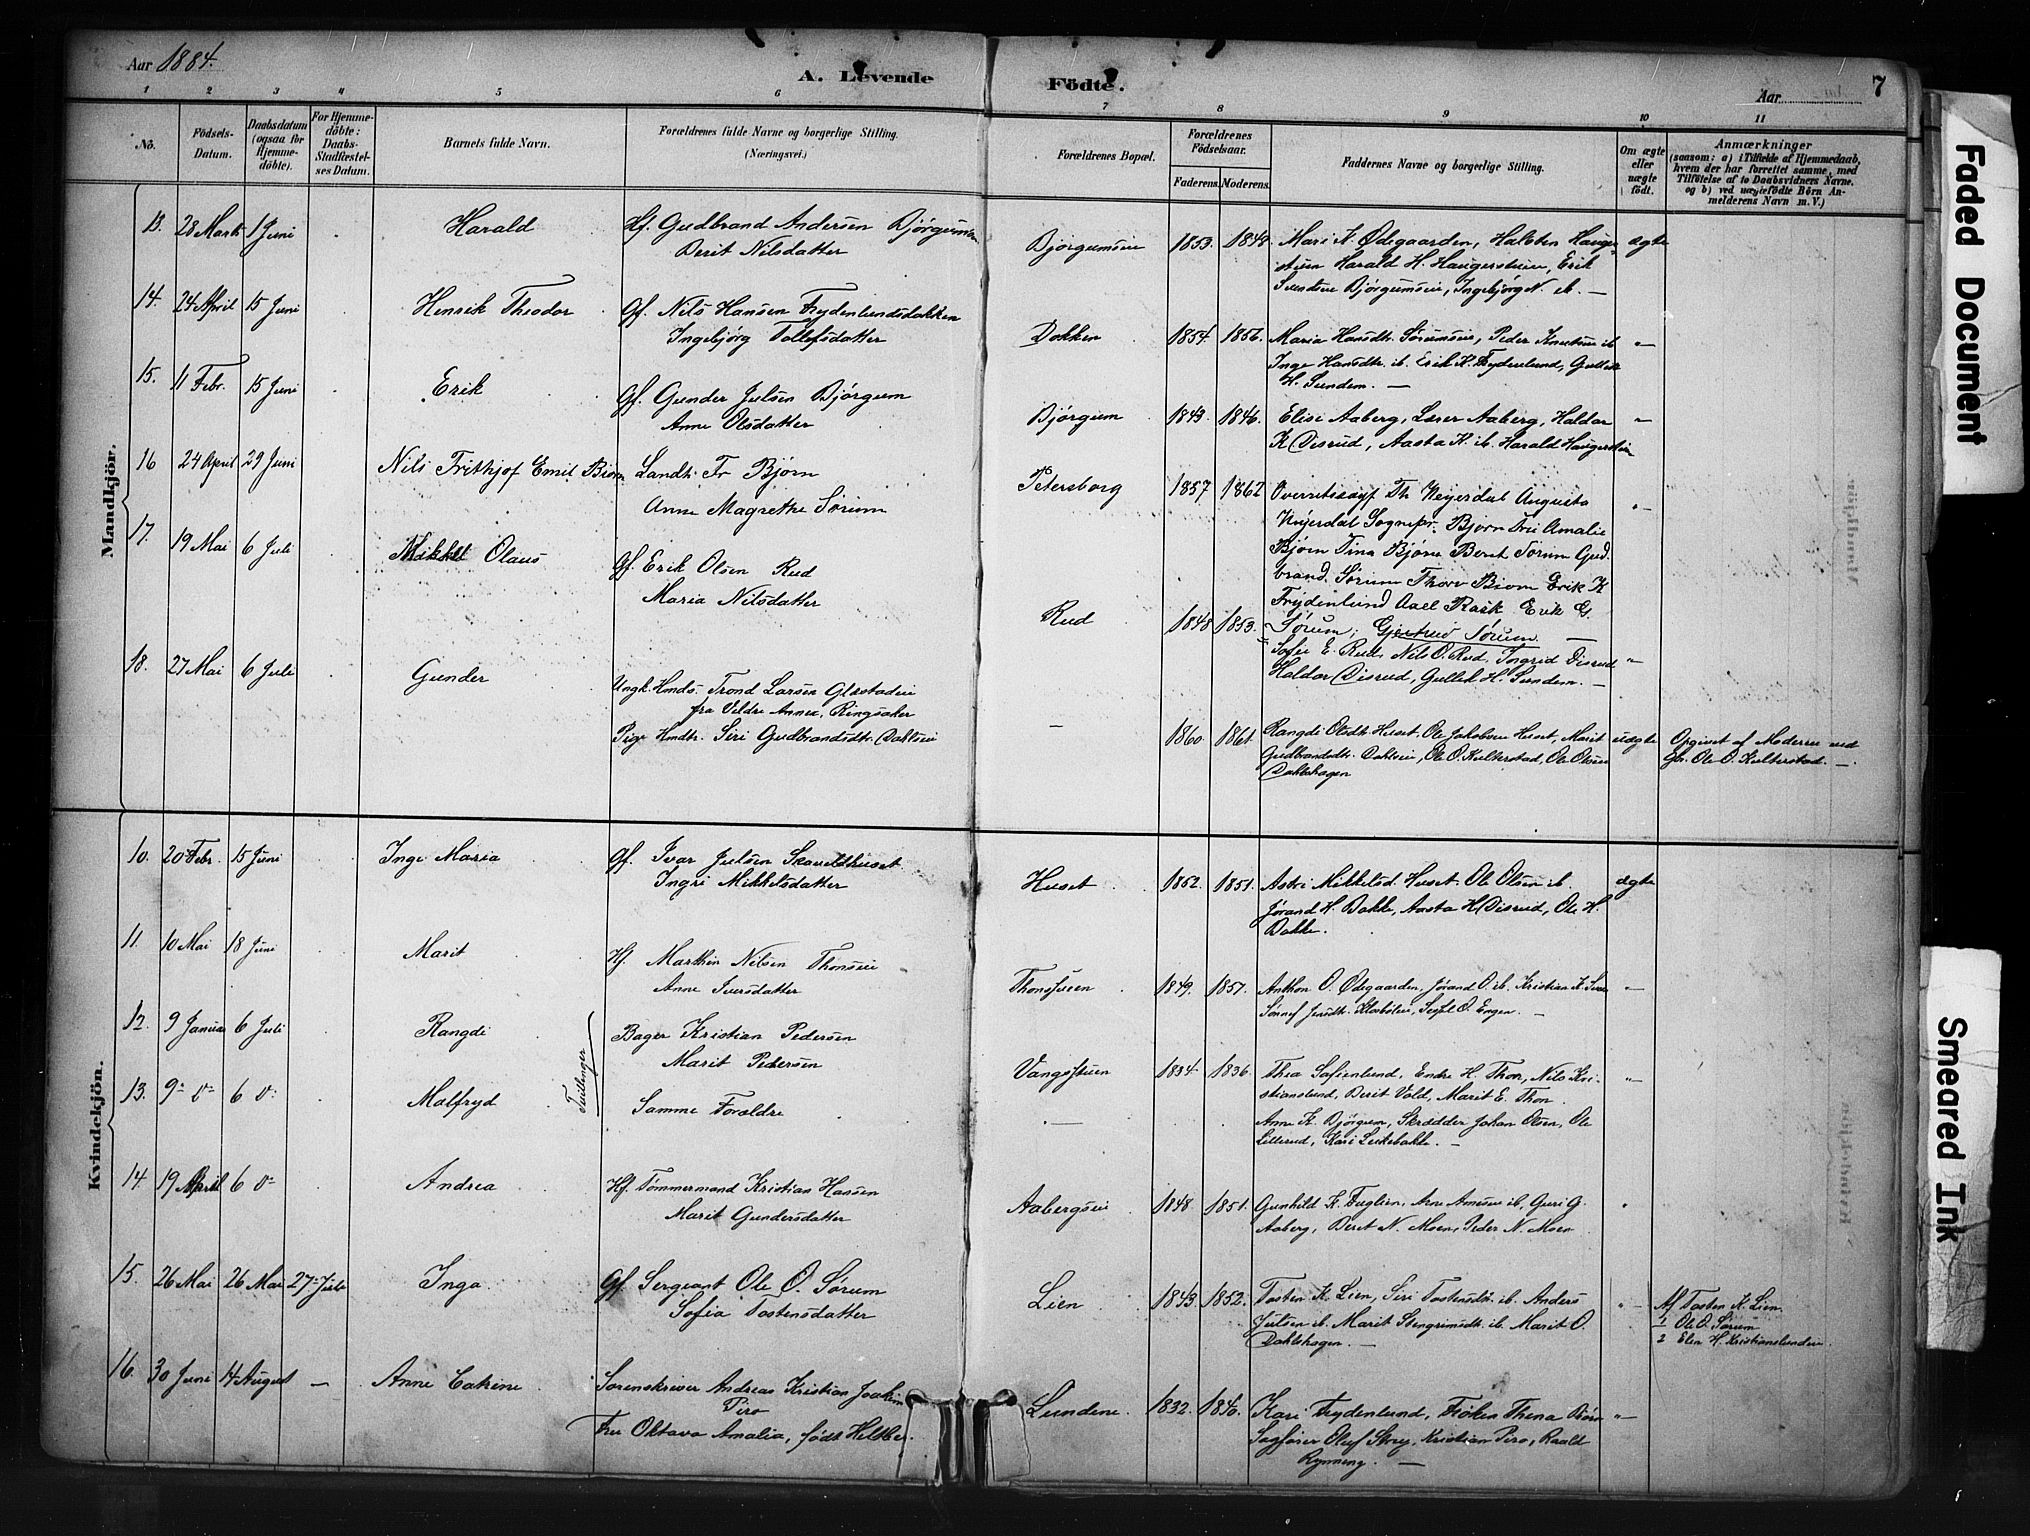 Aar 1884.
A. Levende Födte.
Aar
7
1 2 3 4 5 6 7 8 9 10 11
No.
Födsels-Datum.
Daabsdatum (ogsaa for Hjemme-döbte).
For Hjemme-döbte: Daabs-Stadfæstel-ses Datum.
Barnets fulde Navn.
Forældrenes fulde Navne og borgerlige Stilling.
(Næringsvei.)
Forældrenes Bopæl.
Forældrenes Födselsaar.
Faderens. Moderens.
Faddernes Navne og borgerlige Stilling.
Om ægte eller uægte födt.
Anmærkninger
(saasom: a) i Tilfælde af Hjemmedaab,
hvem der har forrettet samme, med
Tilföielse af to Daabsvidners Navne,
og b) ved uægtefödte Börn An-
melderens Navn m. V.)
Mandkjön.
13. 28 Marts 1 Juni Harald
Hf. Gudbrand Andersen Bjørgumsn
Berit Nilsdatter
Bjørgumseie 1853. 1848
Mari K. Ødegaarden, Halsten Hauger-
stuen Harald H. Haugerstuen, Erik
Svendsen Bjørgumseie, Ingebjørg N. ib. —
ægte
14. 24 April 15 Juni Henrik Theodor
Gf. Nils Hansen Frydenlundsdokken
Ingebjørg Tollefsdatter
Dokken 1854 1856.
Maria Hansdtr. Sørumseie, Peder Knutsen ib
Inge Hansdtr. ib. Erik K. Frydenlund, Gullik
H. Sundem. —
"
15. 11 Febr. 15 Juni Erik
Gf. Gunder Julsen Bjørgum
Anne Olsdatter
Bjørgum 1843. 1846.
Elise Aaberg, Lærer Aaberg, Haldor
K Disrud, Aasta K. ib. Harald Haugerstuen
"
16 24 April 29 Juni Nils Frithjof Emil Biørn
Landh. Fr Bjørn
Anne Magrethe Sørum
Petersborg 1857 1862
Overretssagf Th Weyerdal Augusta
Weyerdal Sognepr. Bjørn Fru Amalie
Bjørn Tina Bjørn Berit Sørum Gud-
brand Sørum Thorv Biørn Erik K
Frydenlund Axel Rask Erik G.
Sørum, Gjertrud Sørum. —
"
17. 19 Mai 6 Juli Mikkel Olaus
Gf. Erik Olsen Rud
Maria Nilsdatter
Rud 1848 1853.
Sofie E. Rud, Nils O. Rud, Ingrid Disrud
Haldor Disrud, Gullik H. Sundem. —
"
18. 27 Mai 6 Juli Gunder
Ungk. Hmds. Trond Larsen Glæstadeie
fra Veldre Annex, Ringsaker
Pige Hmdtr. Siri Gudbrandsdtr. Dahlseie
— 1860. 1861.
Rangdi Olsdtr. Huset, Ole Jakobsen Huset, Marit
Gudbrandsdtr. Dahlseie, Ole O. Kulterstad, Ole Olsen
Dahlshagen
uægte
Opgivet af Moderen ved
Gbr. Ole O. Kulterstad. —
Kvindekjön.
10. 20 Febr. 15 Juni Inge Maria
Gf. Ivar Julsen Skaveldhuset
Ingri Mikkelsdatter
Huset 1852. 1851.
Astri Mikkelsd. Huset. Ole Olsen ib.
Jørand H. Bakke, Aasta H Disrud, Ole H.
Bakke.
ægte
11. 10 Mai 18 Juni Marit
Hf. Marthin Nilsen Thonseie
Anne Iversdatter
Thonshuen 1849. 1857.
Anthon O. Ødegaarden, Jørand O. ib. Kristian K.
O. Engen. —
"
12. 9 Januar 6 Juli Rangdi
Tvillinger
Bager Kristian Pedersen
Marit Pedersen
Vangsstuen 1834 1836
Thea Safienlund, Endre H. Thon, Nils Kri-
stianslund, Berit Vold, Marit E. Thon.
"
13. 9- 0- 6 0- Malfryd
Samme Forældre
—
Anne K. Bjørgum, Skrædder Johan Olsen, Ole
Lillerud, Kari Leikebakke. —
14. 19 April 6 0- Andrea
Hf. Tømmermand Kristian Hansen
Marit Gundersdatter
Aabergseie 1848. 1851.
Gunhild K. Fuglien, Arne Arnesen ib, Guri G.
Aaberg, Berit N. Moen, Peder N. Moen
"
15. 26 Mai 26 Mai 27- Juli Inga
Gf. Sergeant Ole O. Sørum
Sofia Tostensdatter
Lien 1843. 1852.
Tosten K. Lien, Siri Tostensdtr. ib. Anders
Julsen ib. Marit Stengrimsdtr. ib. Marit O.
Dahlshagen. —
" —
Af Tosten K. Lien
1 Ole O. Sørum
2 Elen H. Kristianslundeie
16. 30 Juni 14 August — Anne Catrine
Sorenskriver Andreas Kristian Joakim
Piro
Fru Oktava Amalia, født Heltber.
Lundene. 1832. 1840.
Kari Frydenlund, Frøken Thena
Sagfører Oluf Strey, Kristian Piro, Roald
Rynning. —
" —
Faded Document
Smeared Ink